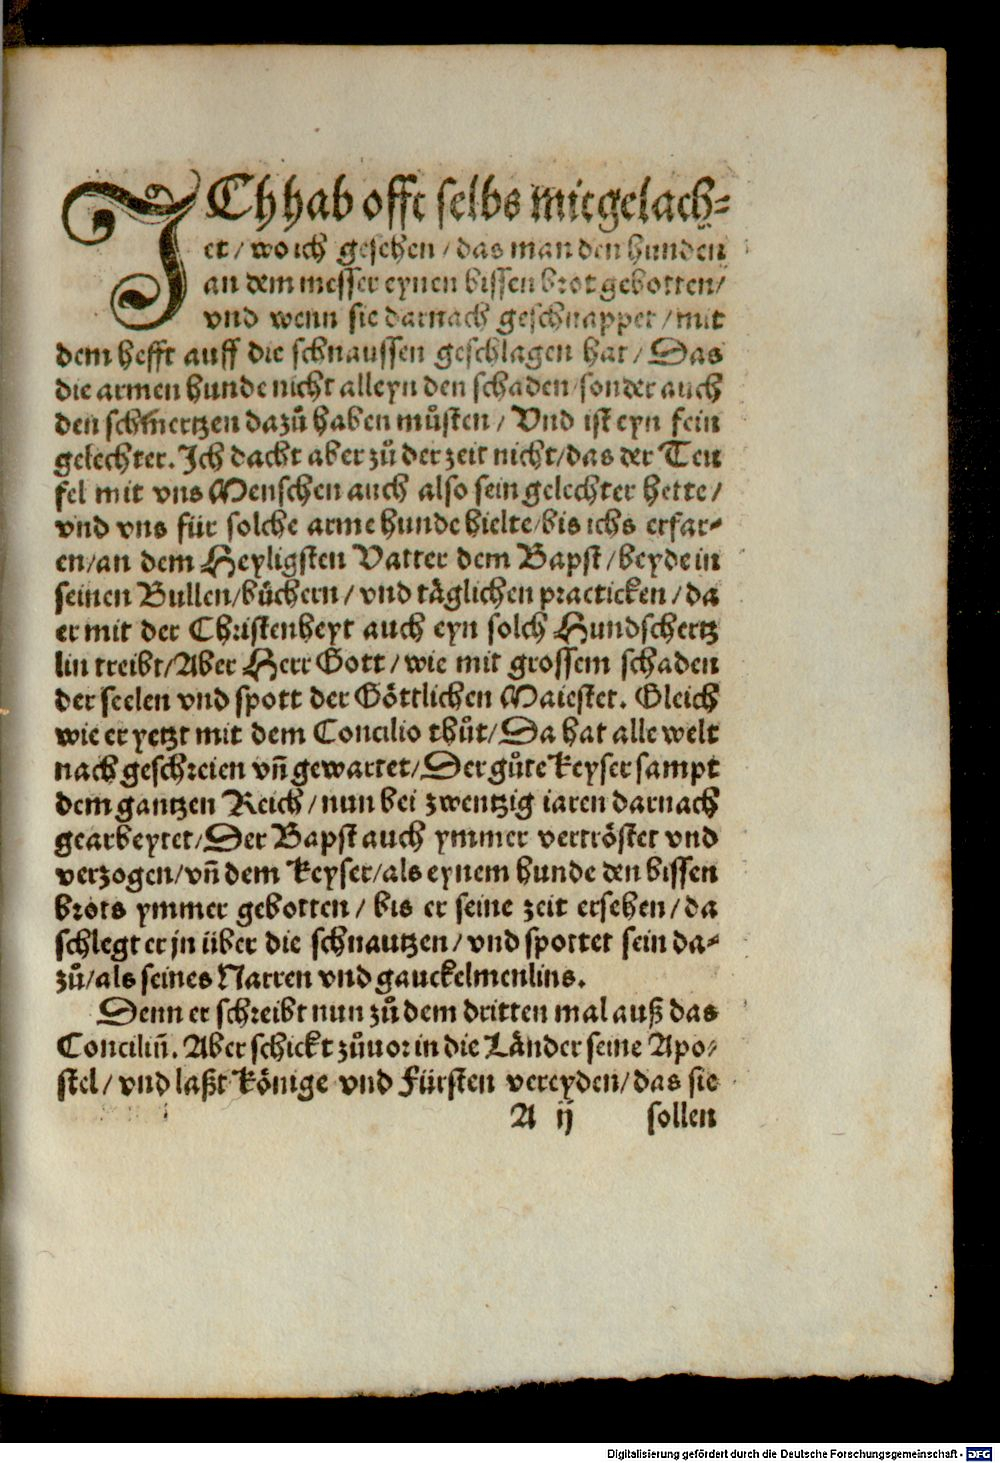 ICh hab offt selbs mitgelach⸗
et / wo ich gesehen / das man den hunden
an dem messer eynen bissen brot gebotten /
vnd wenn sie darnach geschnappet / mit
dem hefft auff die schnaussen geschlagen hat / Das
die armen hunde nicht alleyn den schaden / sonder auch
den schmertzen dazů haben můsten / Vnd ist eyn fein
gelechter. Ich dacht aber zů der zeit nicht / das der Teu
fel mit vns Menschen auch also sein gelechter hette /
vnd vns für solche arme hunde hielte / bis ichs erfar⸗
en / an dem Heyligsten Vatter dem Bapst / beyde in
seinen Bullen / bůchern / vnd täglichen practicken / da
er mit der Christenheyt auch eyn solch Hundschertz
lin treibt / Aber Herr Gott / wie mit grossem schaden
der seelen vnd spott der Göttlichen Maiestet. Gleich
wie er yetzt mit dem Concilio thůt / Da hat alle welt
nach geschreien vñ gewartet / Der gůte Keyser sampt
dem gantzen Reich / nun bei zwentzig iaren darnach
gearbeytet / Der Bapst auch ymmer vertröstet vnd
verzogen / vñ dem Keyser / als eynem hunde den bissen
brots ymmer gebotten / bis er seine zeit ersehen / da
schlegt er jn über die schnautzen / vnd spottet sein da⸗
zů / als seines Narren vnd gauckelmenlins.
Denn er schreibt nun zů dem dritten mal auß das
Conciliũ. Aber schickt zůuor in die Länder seine Apo⸗
stel / vnd laßt Könige vnd Fürsten vereyden / das sie
A ij sollen
Digitalisierung gefördert durch die Deutsche Forschungsgemeinschaft - DFG